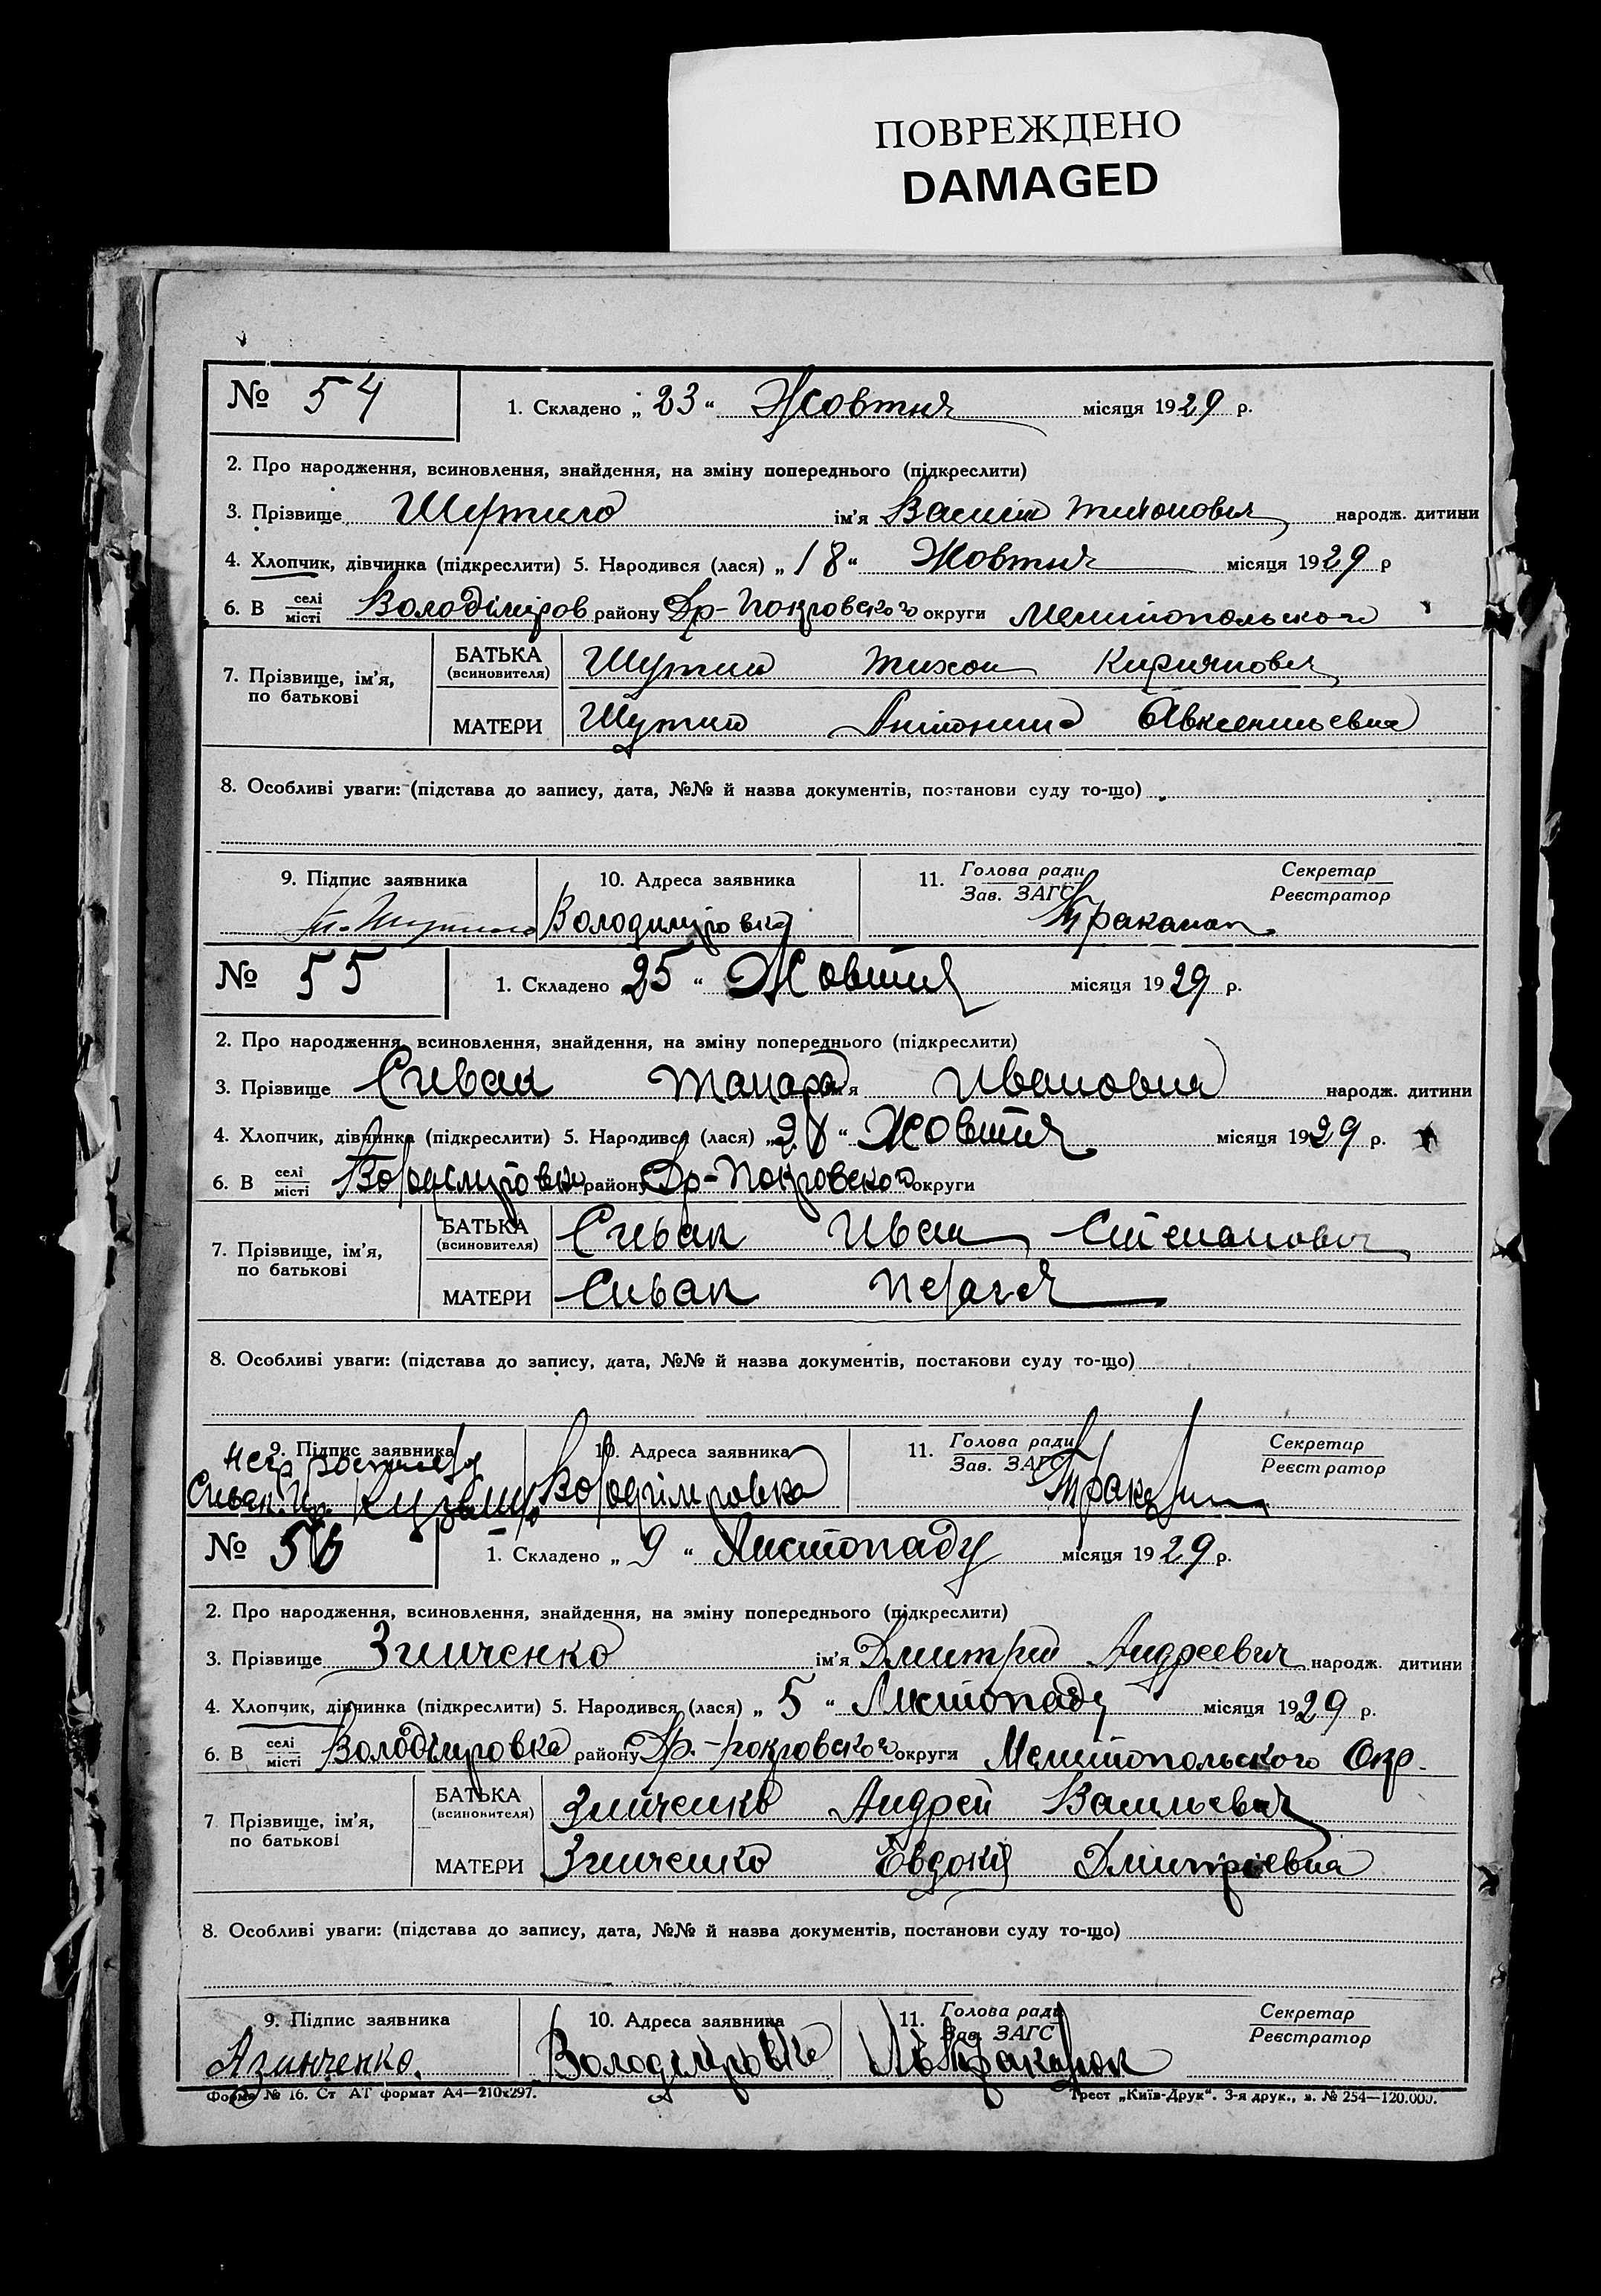 ПОВРЕЖДЕНО
DAMAGED
№ 54
1. Складено „ 23 “ Жовтня місяця 1929 р.
2. Про народження, всиновлення, знайдення, на зміну попереднього (підкреслити)
3. Прізвище ім'я Тихонович народж. дитини
4. Хлопчик, дівчинка (підкреслити) 5. Народився (лася) „ 18 “ Жовтня місяця 1929 р
6. В селі місті Володіміров району Др-Покровского округи Мелитопольского
7. Прізвище, ім'я, по батькові
БАТЬКА (всиновителя) Тихон
МАТЕРИ
8. Особливі уваги: (підстава до запису, дата, №№ й назва документів, постанови суду то-що)
9. Підпис заявника 10. Адреса заявника 11. Голова ради Зав. ЗАГС Секретар Реєстратор
Володимировка
№ 55
1. Складено 25 “ Жовтня місяця 1929 р.
2. Про народження, всиновлення, знайдення, на зміну попереднього (підкреслити)
3. Прізвище Сивак ім'я Ивановна народж. дитини
4. Хлопчик, дівчинка (підкреслити) 5. Народився (лася) „ “ Жовтня місяця 1929 р.
6. В селі місті Володимировки району Др-Покровского округи
7. Прізвище, ім'я, по батькові
БАТЬКА (всиновителя) Сивак Иван Степанович
МАТЕРИ Сивак Пелагея
8. Особливі уваги: (підстава до запису, дата, №№ й назва документів, постанови суду то-що)
9. Підпис заявника 10. Адреса заявника 11. Голова ради Зав. ЗАГС Секретар Реєстратор
Сивак Володімировка
№ 56
1. Складено „ 9 “ Листопаду місяця 1929 р.
2. Про народження, всиновлення, знайдення, на зміну попереднього (підкреслити)
3. Прізвище Зинченко ім'я Дмитрий Андреевич народж. дитини
4. Хлопчик, дівчинка (підкреслити) 5. Народився (лася) „ 5 “ Листопаду місяця 1929 р.
6. В селі місті Володімировка району Др.-покровского округи Мелитопольского Окр.
7 Прізвище, ім'я, по батькові
БАТЬКА (всиновителя) Зинченко Андрей Васильевич
МАТЕРИ Зинченко Евдокія Дмитріевна
8. Особливі уваги: (підстава до запису, дата, №№ й назва документів, постанови суду то-що)
9. Підпис заявника 10. Адреса заявника 11. Голова ради Зав. ЗАГС Секретар Реєстратор
Азинченко. Володімировка
Форма № 16. Ст. АТ формат А4—210х297. Трест „Київ-Друк“. 3-я друк., з. № 254—120.000.